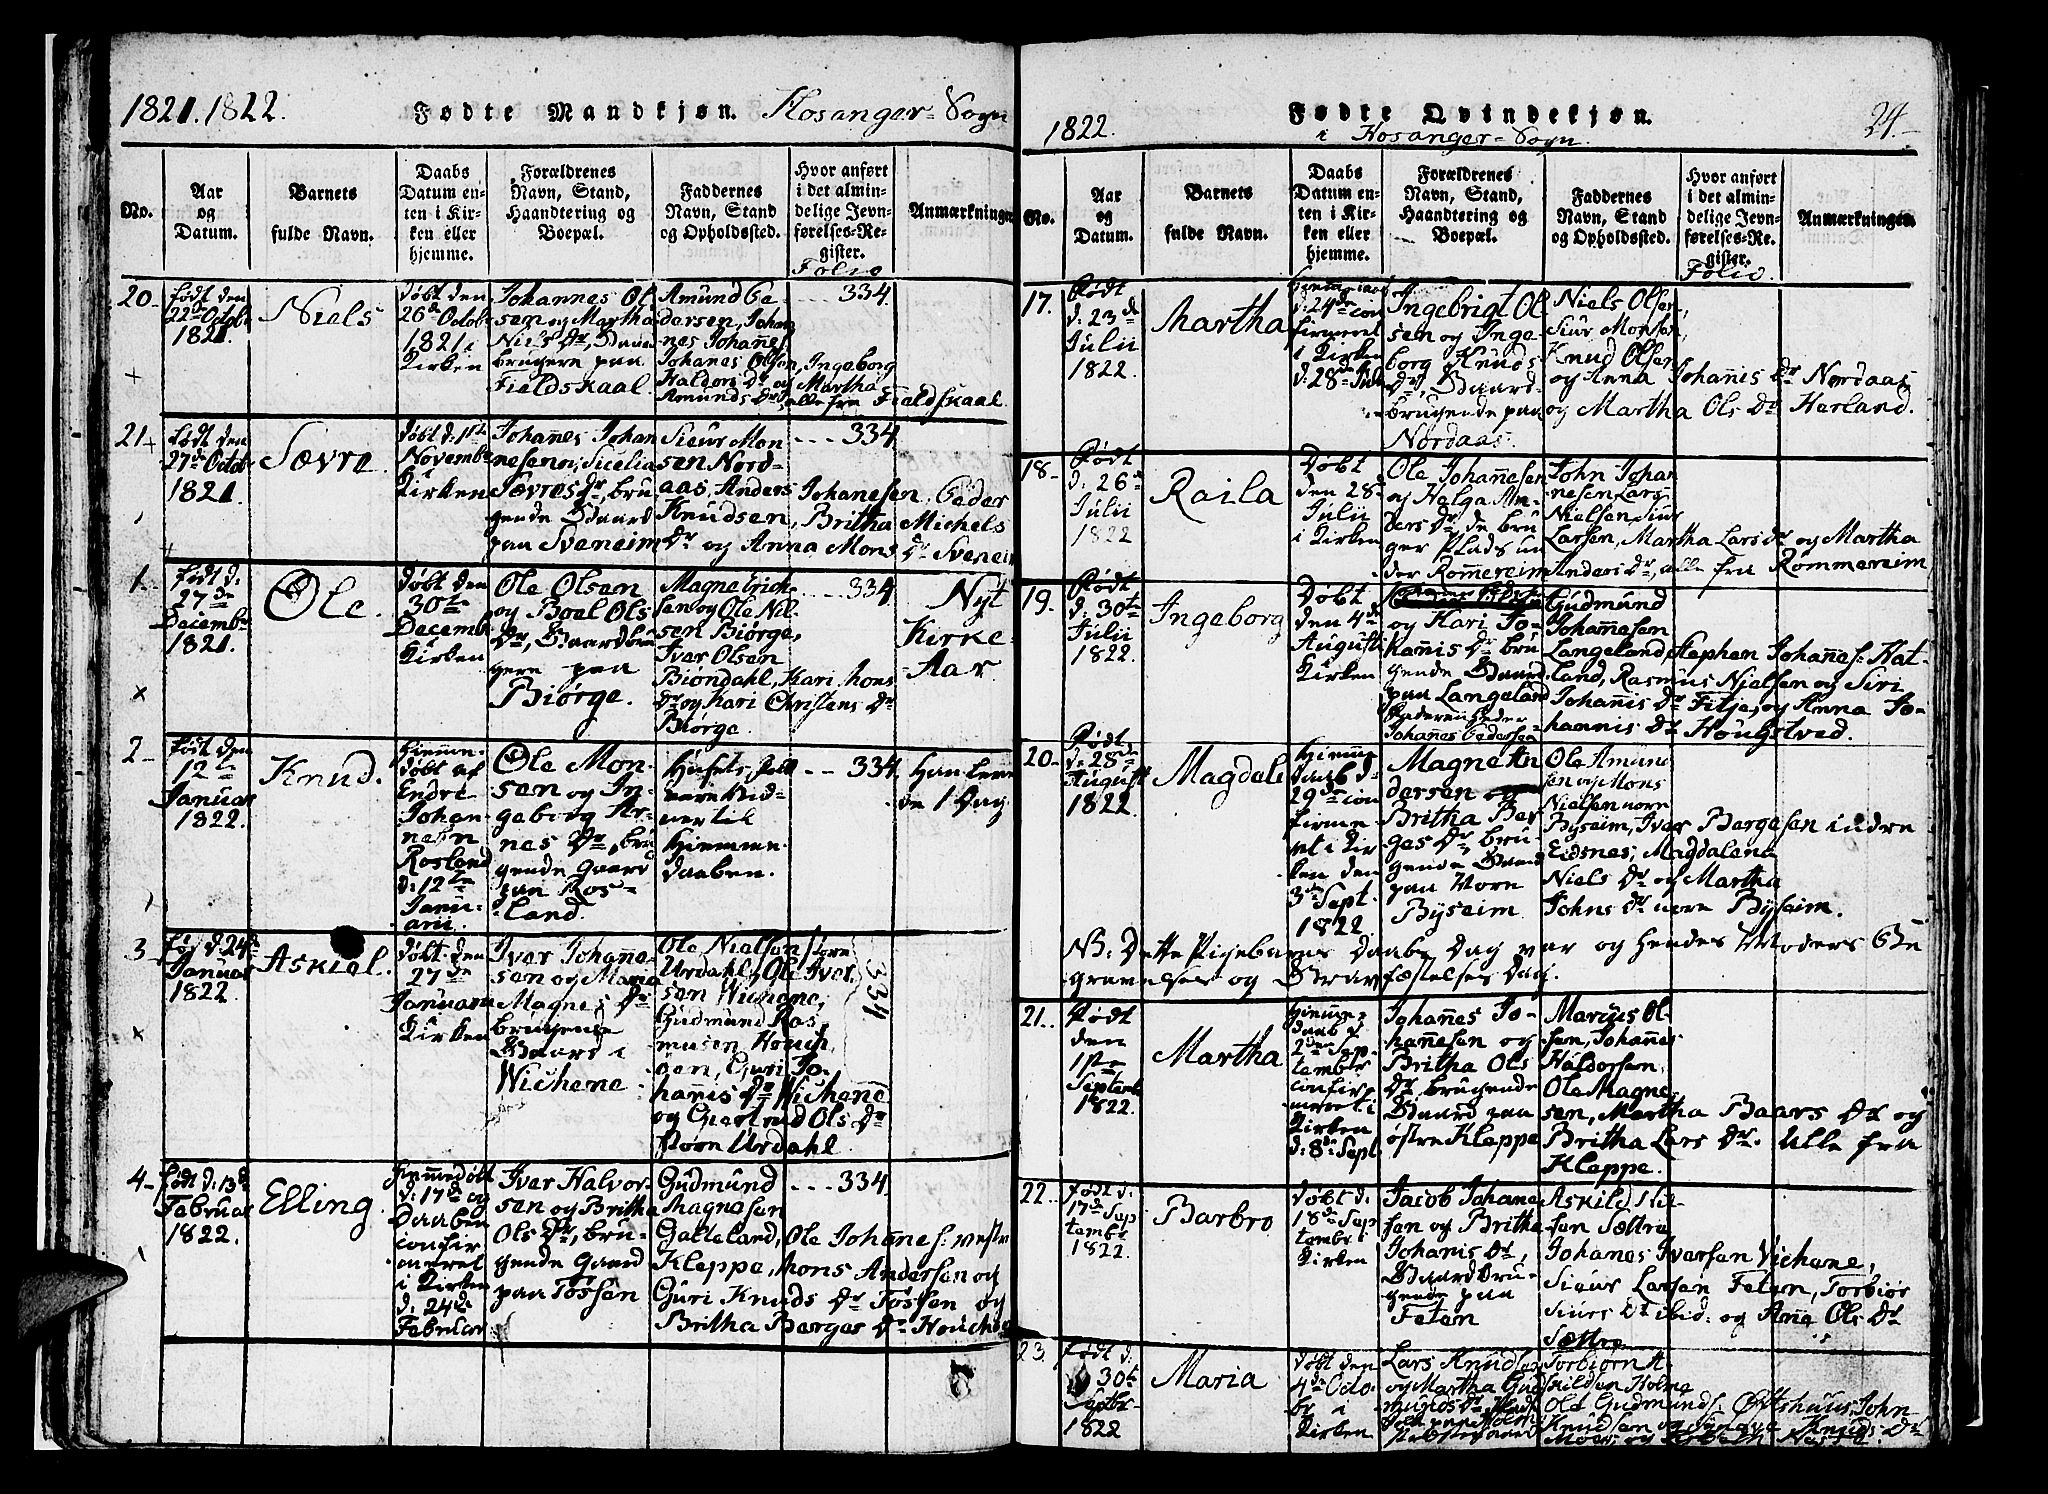 1821.1822.
Fødte Mandkjøn. Hosanger-Sogn
No.
Aar
og
Datum.
Barnets
fulde Navn.
Daabs
Datum en-
ten i Kir-
ken eller
hjemme.
Forældrenes
Navn, Stand,
Haandtering og
Boepæl.
Faddernes
Navn, Stand
og Opholdssted.
Hvor anført
i det almin-
delige Jevn-
førelses-Re-
gister.
Folio
Anmærkninger
20-
født den
22de Octob
1821.
Niels
døbt den
26de Octob
1821 i
Kirken
Johannes Ol
sen og Martha
Niels Dr, Gaard
brugere paa
Fieldskaal.
Amund Pe
dersen, Johan
nes Johannes
Johanes Olsen, Ingeborg
Haldors Dr og Martha
Amunds Dr, alle fra Fieldskaal.
---334
21
født den
27de Octob
1821
Sævre
døbt d: 1ste
Novembr
Kirken
Johannes Johan
nesen og Sicelia
Sævres Dr, bru
gende Gaard
paa Sveneim
Sieur Mon
sen Nord-
aas, Anders Johanesen, Peder
Knudsen, Britha Michels
Dr og Anna Mons Dr Sveneim
---334
1-
født d:
27de
Decembr
1821.
Ole.
døbt den
30te
Decemb
Kirken
Ole Olsen
og Boel Ols
Dr, Gaardbru
gere paa
Biørge.
Magne Erick
sen og Ole Nil
sen Biørge,
Iver Olsen
Biøndahl, Kari Mons
Dr og Kari Christens Dr
Biørge.
---334
Nyt
Kirke-
Aar
2-
født den
12te
Januar
1822.
Knud.
Hiemme-
døbt af
Endre
Johan-
nesen
Rosland
d: 12te
Janu-
arii
Ole Mon-
sen og In-
geborg Ar-
nes Dr, bru
gende Gaard
paa Ros-
land.
Husets folk
vare Vid-
ner til
Hiemme-
daaben.
---334
Han leve
de 1 Dag
3
fød d. 24de
Januar
1822.
Askiel.
døbt den
27de
Januarii
Kirken
Iver Johanne-
sen og Maria
Magnes Dr
brugende
Gaard i
Wichene
Ole Nielsen Store
Urdahl, Ole Iver
sen Wichene,
Gudmund Ras
musen Houch
øen, Guri Jo-
hannis Dr Wichene
og Giertrud Ols Dr
Støre Urdahl
334
4-
født d: 13de
Februar
1822.
Elling.
Hiemmedøbt
d: 17de og
Daaben
confir
meret
i Kirken
d: 24de
Februar
Iver Halvor-
sen og Britha
Ols Dr, bru-
gende Gaard
paa Tossen
Gudmund
Magnesen
Galteland, Ole Johannes: vestre
Kleppe, Mons Andersen og
Guri Knuds Dr Tossen og
Britha Børges Dr Houchøen
---334
1822.
Fødte Qvindekjøn.
i Hosanger-Sogn.
24.
No.
Aar
og
Datum.
Barnets
fulde Navn.
Daabs
Datum en-
ten i Kir-
ken eller
hjemme.
Forældrenes
Navn, Stand,
Haandtering og
Boepæl.
Faddernes
Navn, Stand
og Opholdssted.
Hvor anført
i det almin-
delige Jevn-
førelses-Re-
gister.
Folio.
Anmærkninger.
17.
Født
d: 23de
Julii
1822.
Martha
d: 24de con
firmeret
i Kirken
d: 28de Juli
Ingebrigt Ol
sen og Inge
borg Knuds
Dr, Gaard-
brugende paa
Nordaas.
Niels Olsen,
Siur Monsen,
Knud Olsen
og Anna Johannis Dr Nordaas
og Martha Ols Dr Herland.
18-
Født
d: 26de
Julii
1822
Raila
Døbt
den 28de
Julii
i Kirken
Ole Johannesen
og Helga An-
ders Dr, de bru
ger Plads un
der Rommereim
John Johan
nesen Lars
Nielsen Siur
Larsen, Martha Lars Dr og Martha
Anders Dr, alle fra Rommereim
19.
Født
d: 30te
Julii
1822.
Ingeborg
Døbt
den 4de
Augusti
Kirken
og Kari Jo-
hannis Dr bru
gende Gaard
paa Langeland
Johannes Pedersen
Gudmund
Johannesen
Langeland, Stephen Johannes: Hat-
land, Rasmus Nielsen og Siri
Johannis Dr Fitje, og Anna Jo-
hannis Dr Hougstved.
20-
Født
d: 28de
August
1822.
Magdele
Hiemme
daab d:
29de con
firme
ret i Kir
ken den
3die Sept.
1822
Magne An
dersen og
Britha Bør
ges Dr, bru
gende Gaard
paa Vore
Byseim
Ole Amund
sen og Mons
Nielsen nore
Byseim, Iver Børgesen indre
Eidsnes, Magdalena
Niels Dr og Martha
Johns Dr nore Byseim.
NB: Dette Pigebarns Daabs Dag var og hendes Moders Be
gravelses og Gravfæstelses Dag.
21.
Født
den
1ste
Septemb
1822.
Martha
Hiemme-
daab d
2den Sep-
tembr
confir
meret i
Kirken
d: 8de Sept
Johannes Jo-
hannesen og
Britha Ols
Dr, brugende
Gaard paa
østre Kleppe
Marius Ol-
sen, Johannes
Haldorsen,
Ole Magne
sen, Martha Baars Dr og
Britha Lars Dr. Alle fra
Kleppe.
22.
født d:
17de Sep
tembr
1822.
Barbro
døbt d:
18de Sep
tembr i
Kirken
Jacob Johane
sen og Britha
Johanis Dr,
Gaardbru-
gende paa
Feten
Askild Nil-
sen Sættre
Johanes Iversen Vichene,
Sieur Larsen Feten, Torbiør
Siurs Dr ibid: og Anna Ols Dr
Sættre
23.
født d:
30te
Septbr
1822
Maria
døbt den
4de Octo-
br i
Kirken
Lars Knudsen
og Martha Gud
munds Dr, Plads
folk paa Holme
Torbiørn A-
skildsen Holme
Ole Gudmunds: Østshuus, John
Knudsen og Synneva Knuds Dr